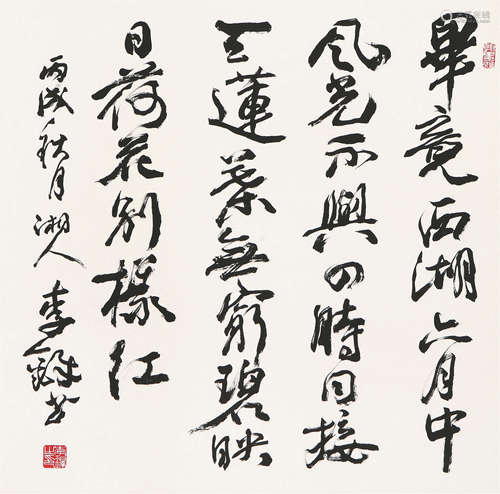 畢竟西湖六月中
風光不與四時同接
天蓮葉無窮碧映
日荷花別樣紅
丙戌秋月湘人李鐸書